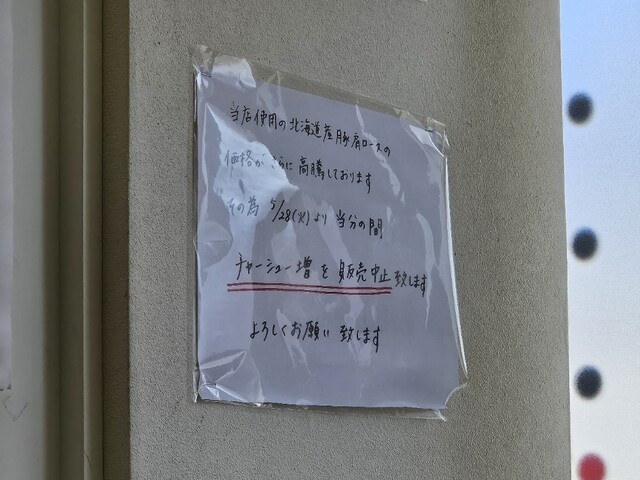 当店使用の北海道産豚肩ロースの
価格がさらに高騰しております
その為 5/28(火)より 当分の間
チャーシュー増を販売中止致します
よろしくお願い致します